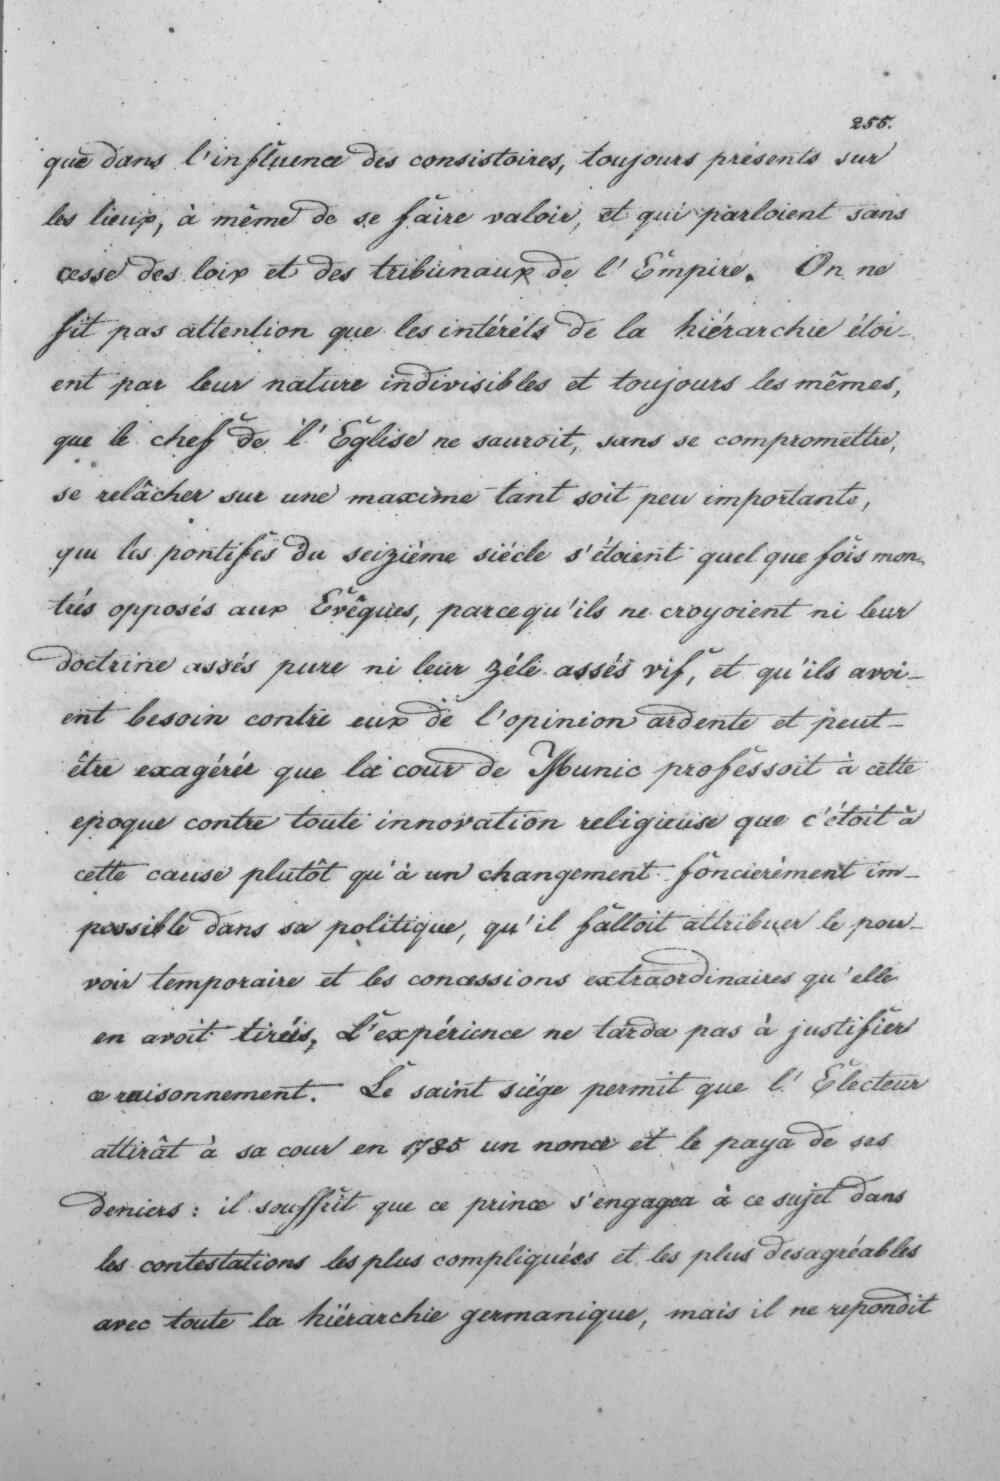 255.
que dans l'influence des consistoires, toujours présents sur
les lieux, à même de se faire valoir, et qui parloient sans
cesse des loix et des tribunaux de l'Empire. On ne
fit pas attention que les intérêts de la hiérarchie étoi-
ent par leur nature indivisibles et toujours les mêmes,
que le chef de l'Eglise ne sauroit, sans se compromettre,
se relâcher sur une maxime tant soit peu importante,
que les pontifes du seiziéme siécle s'étoient quel que fois mon-
trés opposés aux Evêques, parcequ'ils ne croyoient ni leur
doctrine assés pure ni leur zéle assés vif, et qu'ils avoi-
ent besoin contre eux de l'opinion ardente et peut-
être exagérée que la cour de Munic professoit à cette
epoque contre toute innovation religieuse que c'étoit à
cette cause plutôt qu'à un changement foncierément im-
possible dans sa politique, qu'il falloit attribuer le pou-
voir temporaire et les concessions extraordinaires qu'elle
en avoit tirées. L'expérience ne tarda pas à justifier
ce raisonnement. Le saint siége permit que l'Electeur
attirât à sa cour en 1785 un nonce et le paya de ses
deniers: il souffrit que ce prince s'engagea à ce sujet dans
les contestations les plus compliquées et les plus desagréables
avec toute la hiérarchie germanique, mais il ne repondit